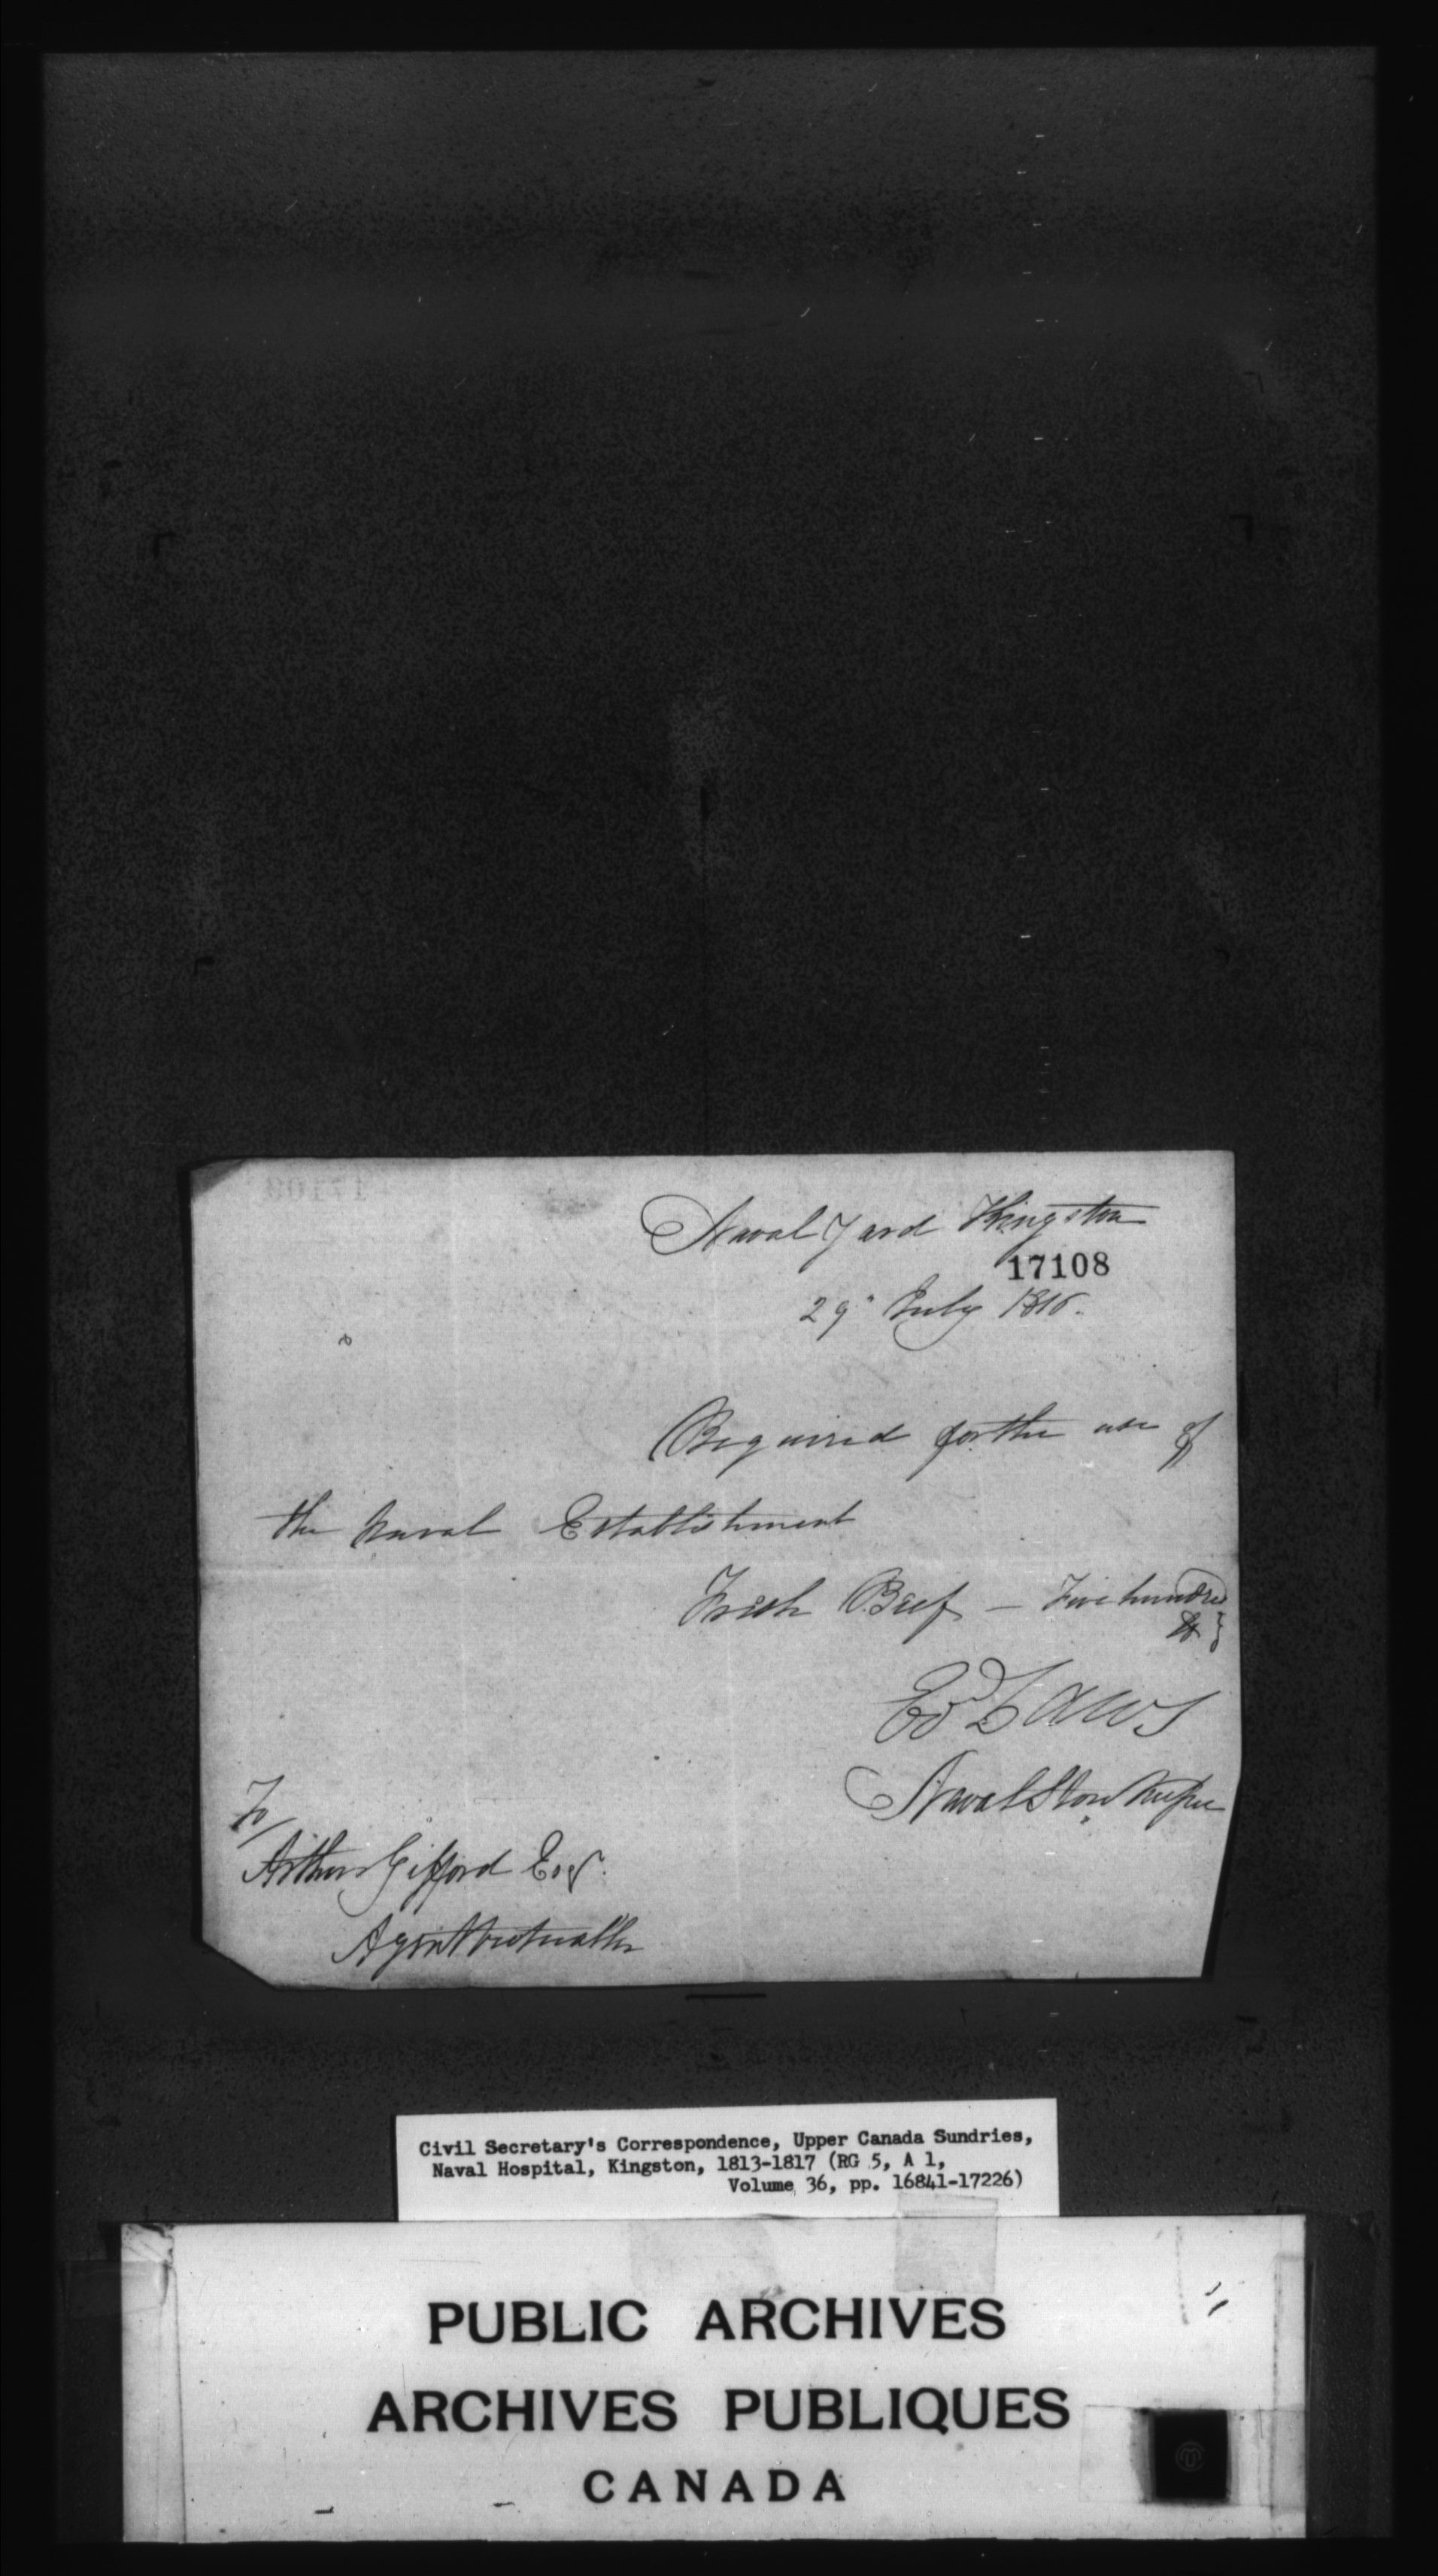 Naval Yard Kingston
17108
29" July 1816.
Required for the use of
the Naval Establishment
Fresh Beef – Five hundred
lb
Ed Laws
Naval Store Keeper
To/
Arthur Gifford Esqr.
Agent Victualler
Civil Secretary's Correspondence, Upper Canada Sundries,
Naval Hospital, Kingston, 1813-1817 (RG 5, A 1,
Volume 36, pp. 16841-17226)
PUBLIC ARCHIVES
ARCHIVES PUBLIQUES
CANADA